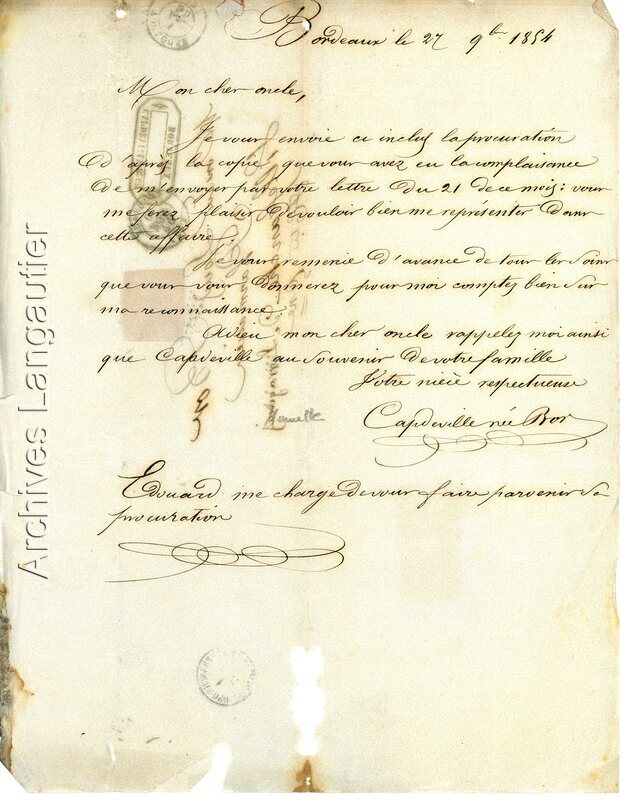 Bordeaux le 27 9bre 1854
Mon cher oncle,
Je vous envoie ci inclus la procuration
d'après la copie que vous avez eu la complaisance
de m'envoyer par votre lettre du 21 de ce mois: vous
me ferez plaisir de vouloir bien me représenter dans
cette affaire.
Je vous remercie d'avance de tous les soins
que vous vous donnerez pour moi comptez bien sur
ma reconnaissance.
Adieu mon cher oncle rappelez moi ainsi
que Capdeville au souvenir de votre famille
Votre nièce respectueuse
Capdeville née Bor
Edouard me charge de vous faire parvenir sa
procuration
Archives Langautier